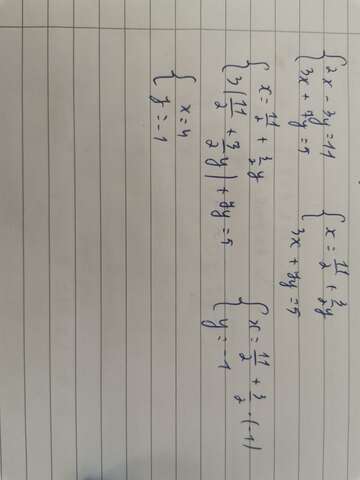 2x - 3y = 11
3x + 7y = 5
x = 11/2 + 3/2 y
3x + 7y = 5
x = 11/2 + 3/2 y
3(11/2 + 3/2 y) + 7y = 5
x = 11/2 + 3/2 · (-1)
y = -1
x = 4
y = -1